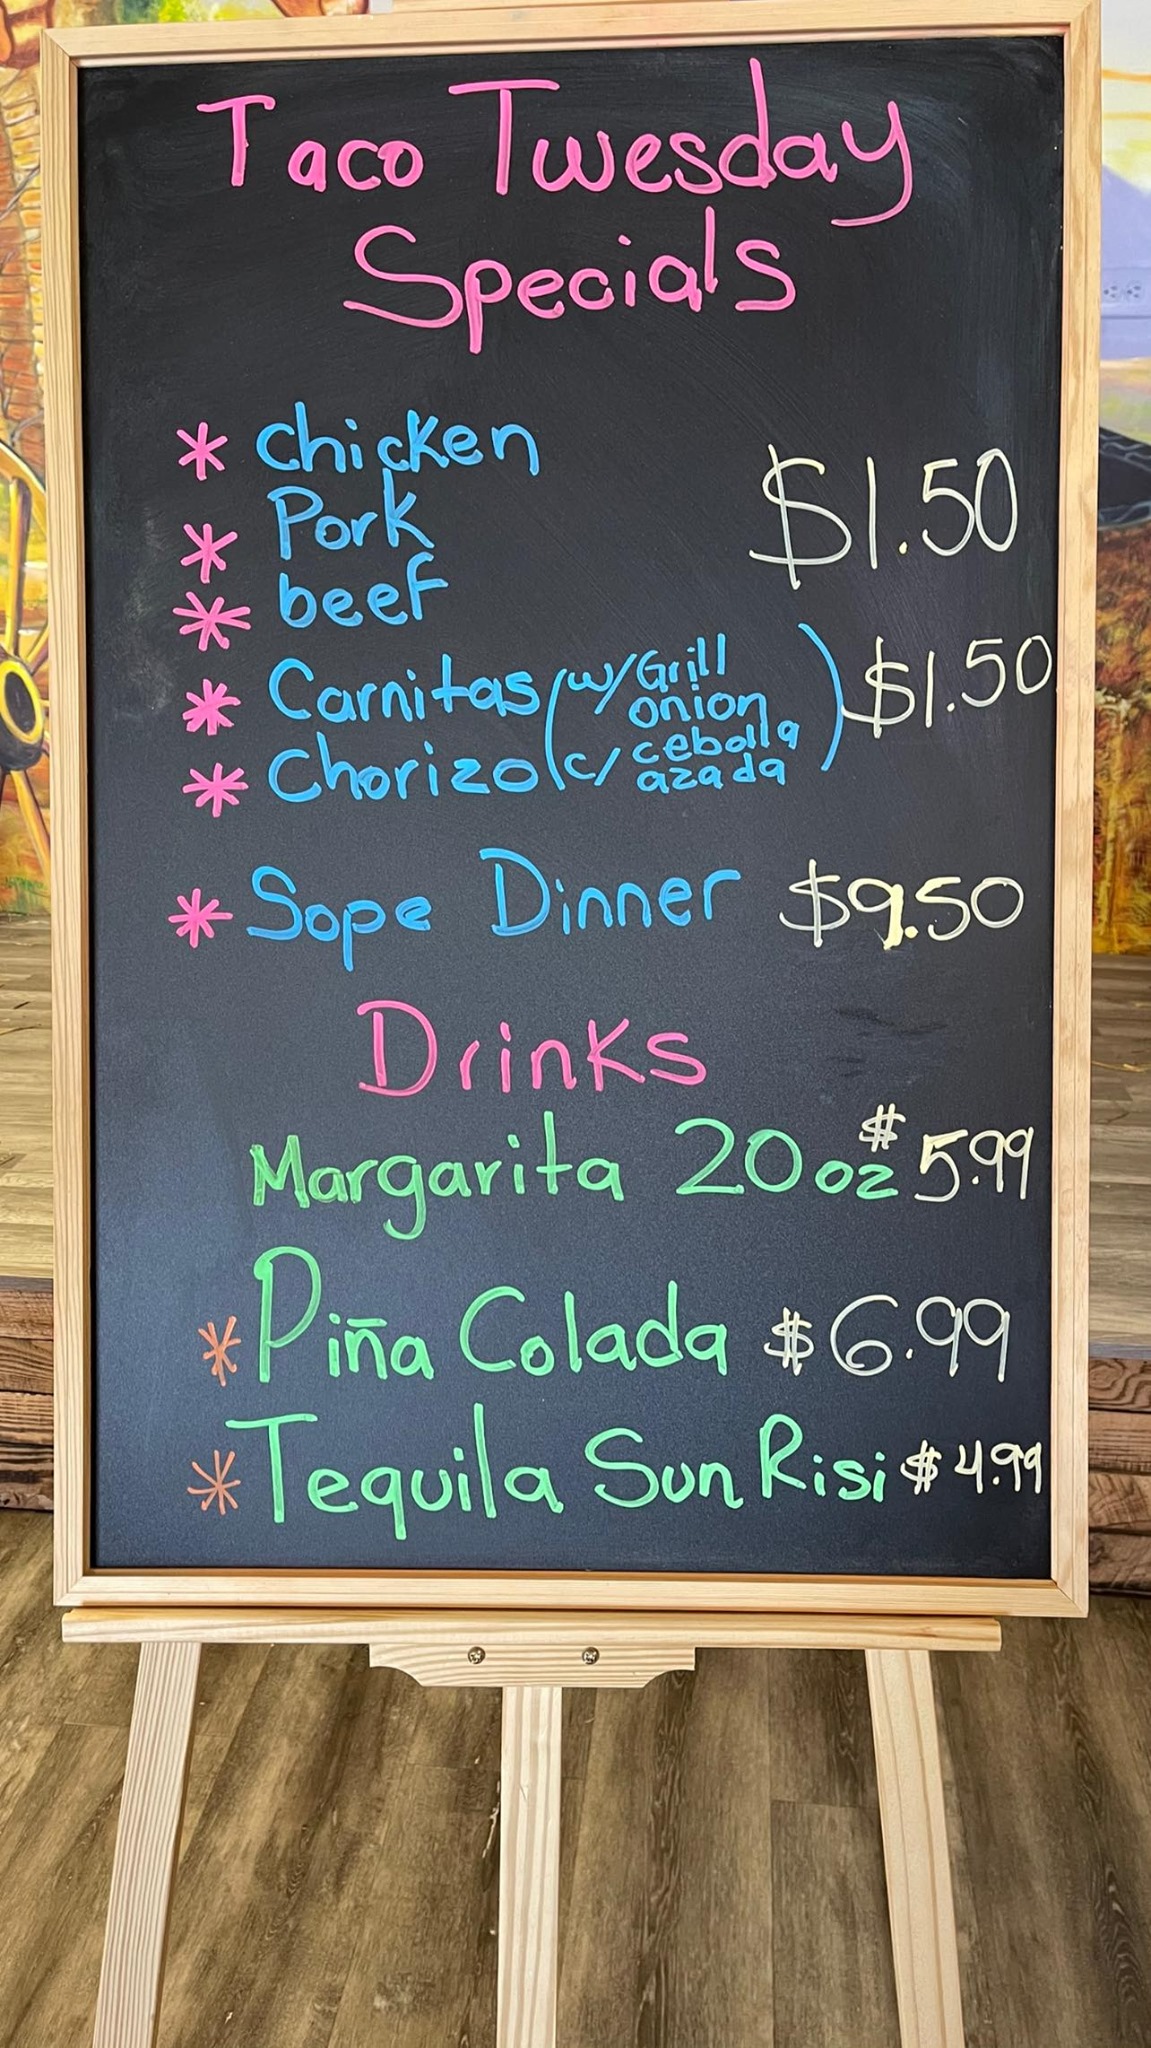 Taco Twesday
Specials
* chicken
* Pork
* beef
$1.50
* Carnitas (w/ Grill onion
* Chorizo (c/ cebolla azada)
$1.50
* Sope Dinner $9.50
Drinks
Margarita 20 oz $5.99
* Piña Colada $6.99
* Tequila Sun Risi $4.99